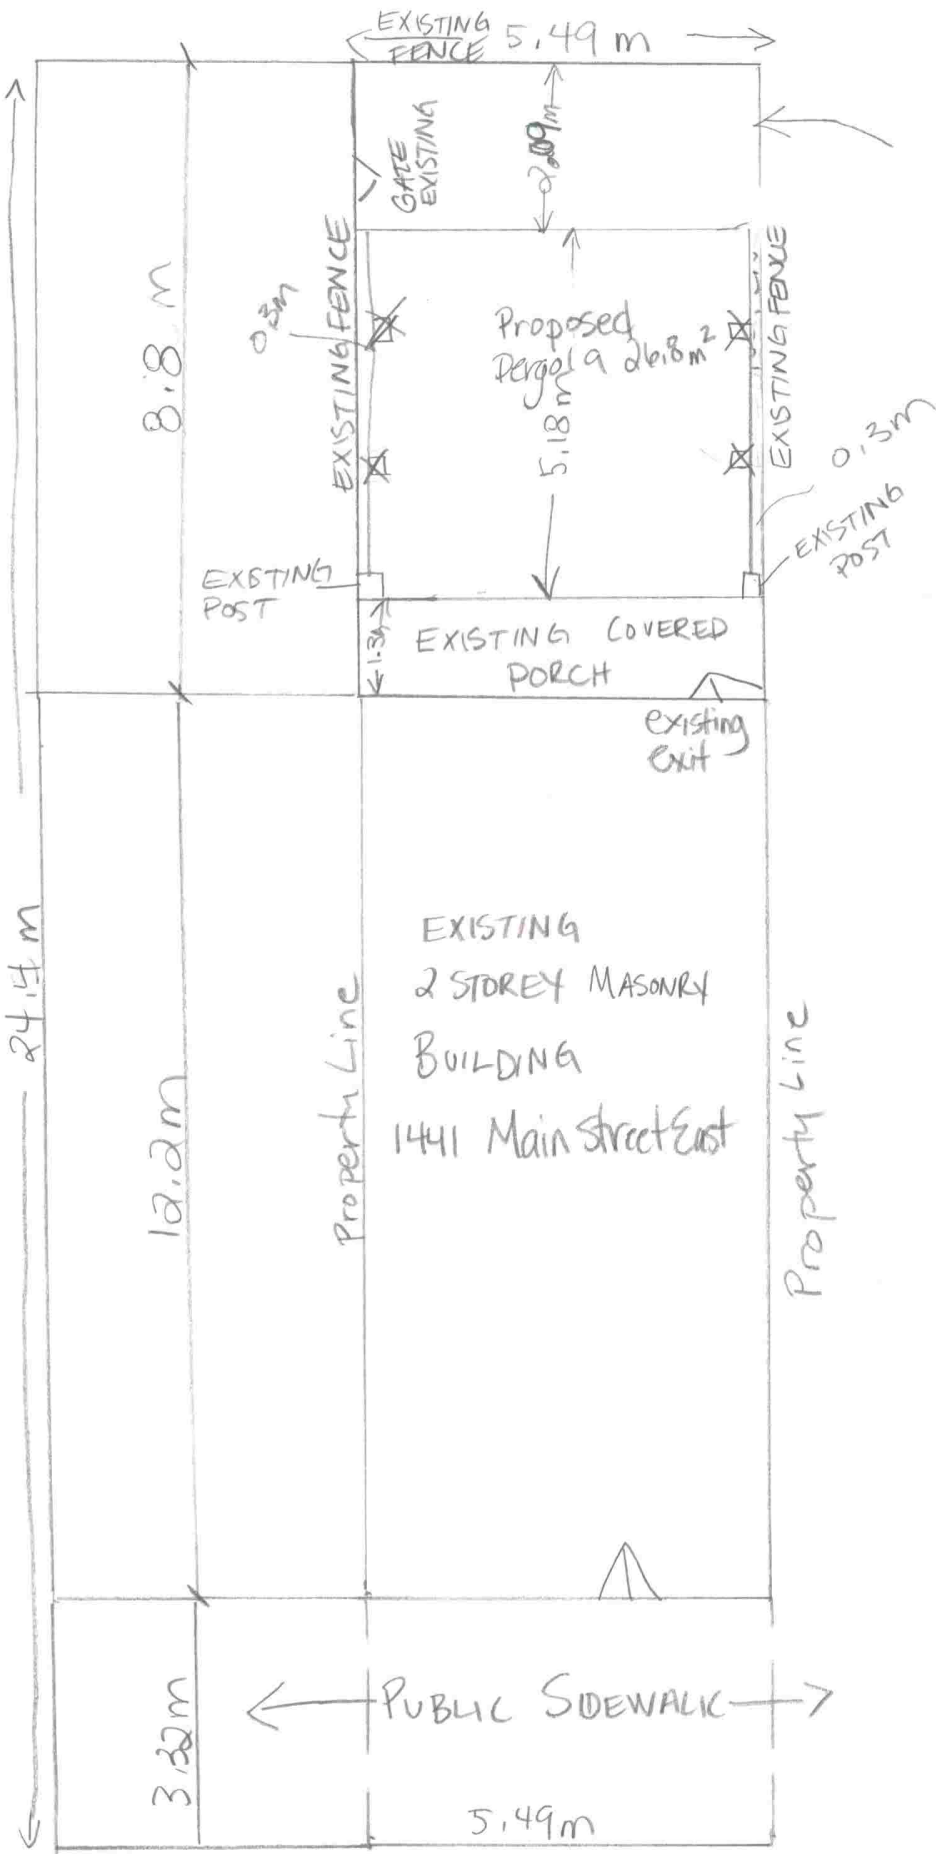 EXISTING
FENCE
5.49 m
2.09m
GATE
EXISTING
8.8 m
EXISTING FENCE
EXISTING FENCE
0.3m
Proposed
Pergola 26.8m²
5.18m
0.3m
EXISTING
POST
EXISTING
POST
1.3m
EXISTING COVERED
PORCH
existing
exit
24.4 m
12.2m
Property Line
EXISTING
2 STOREY MASONRY
BUILDING
1441 Main Street East
Property Line
3.32m
PUBLIC SIDEWALK
5.49m